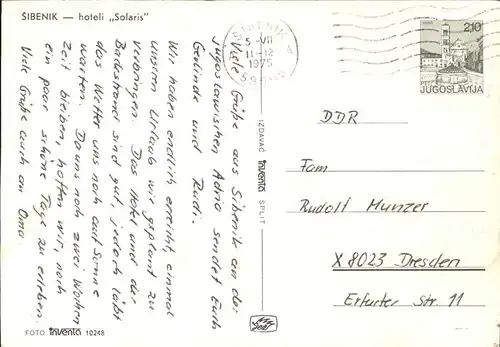 ŠIBENIK — hoteli „Solaris"
Viele Grüße aus Sibenik an der
jugoslawischen Adria sendet Euch
Gerlinde und Rudi.
Wir haben endlich erreicht, einmal
unseren Urlaub wie geplant zu
verbringen. Das Hotel und der
Badestrand sind gut, jedoch läßt
das Wetter uns noch auf Sonne
warten. Da uns noch zwei Wochen
Zeit bleiben, hoffen wir, noch
ein paar schöne Tage zu erleben.
Viele Grüße auch an Oma.
FOTO inventa 10248
IZDAVAČ inventa SPLIT
ŠIBENIK
5-VII
11-12
1975
2,10
JUGOSLAVIJA
DDR
Fam
Rudolf Munzer
X 8023 Dresden
Erfurter Str. 11